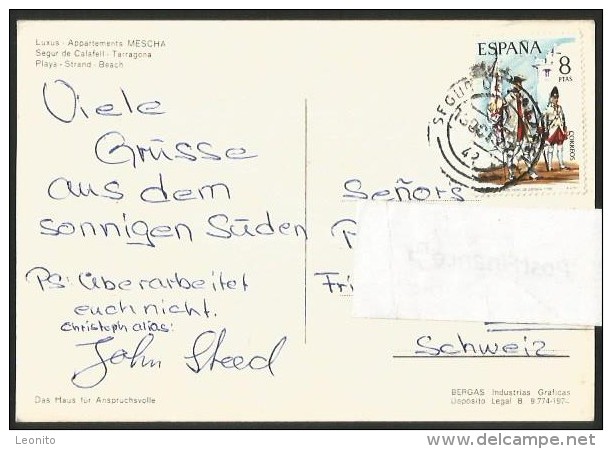 Luxus - Appartements MESCHA
Segur de Calafell - Tarragona
Playa - Strand - Beach
ESPAÑA
8
PTAS
CORREOS
SEGUR
Viele
Grüsse
aus dem
sonnigen Süden
PS: überarbeitet
euch nicht.
Christoph alias:
John Steed
Señors
F
Fri
PostFinance
Schweiz
Das Haus für Anspruchsvolle
BERGAS Industrias Gráficas
Depósito Legal B 9.774-197
Leonito
www.delcampe.net